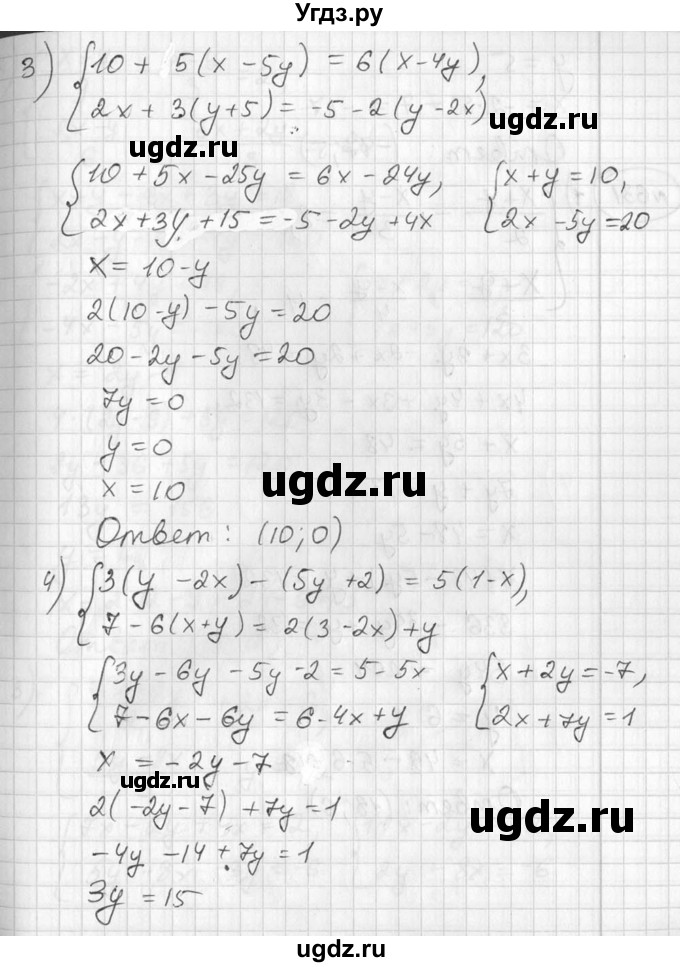 Угдз.ру
3) { 10 + 5(x - 5y) = 6(x - 4y),
2x + 3(y+5) = -5 - 2(y - 2x)
ugdz.ru ugdz.ru
{ 10 + 5x - 25y = 6x - 24y, { x + y = 10,
2x + 3y + 15 = -5 - 2y + 4x 2x - 5y = 20
x = 10 - y
2(10 - y) - 5y = 20
20 - 2y - 5y = 20
7y = 0
y = 0
ugdz.ru
x = 10
Ответ: (10; 0)
4) { 3(y - 2x) - (5y + 2) = 5(1 - x),
7 - 6(x + y) = 2(3 - 2x) + y
{ 3y - 6y - 5y - 2 = 5 - 5x { x + 2y = -7,
7 - 6x - 6y = 6 - 4x + y 2x + 7y = 1
x = -2y - 7
ugdz.ru
2(-2y - 7) + 7y = 1
ugdz.ru
-4y - 14 + 7y = 1
3y = 15
ugdz.ru